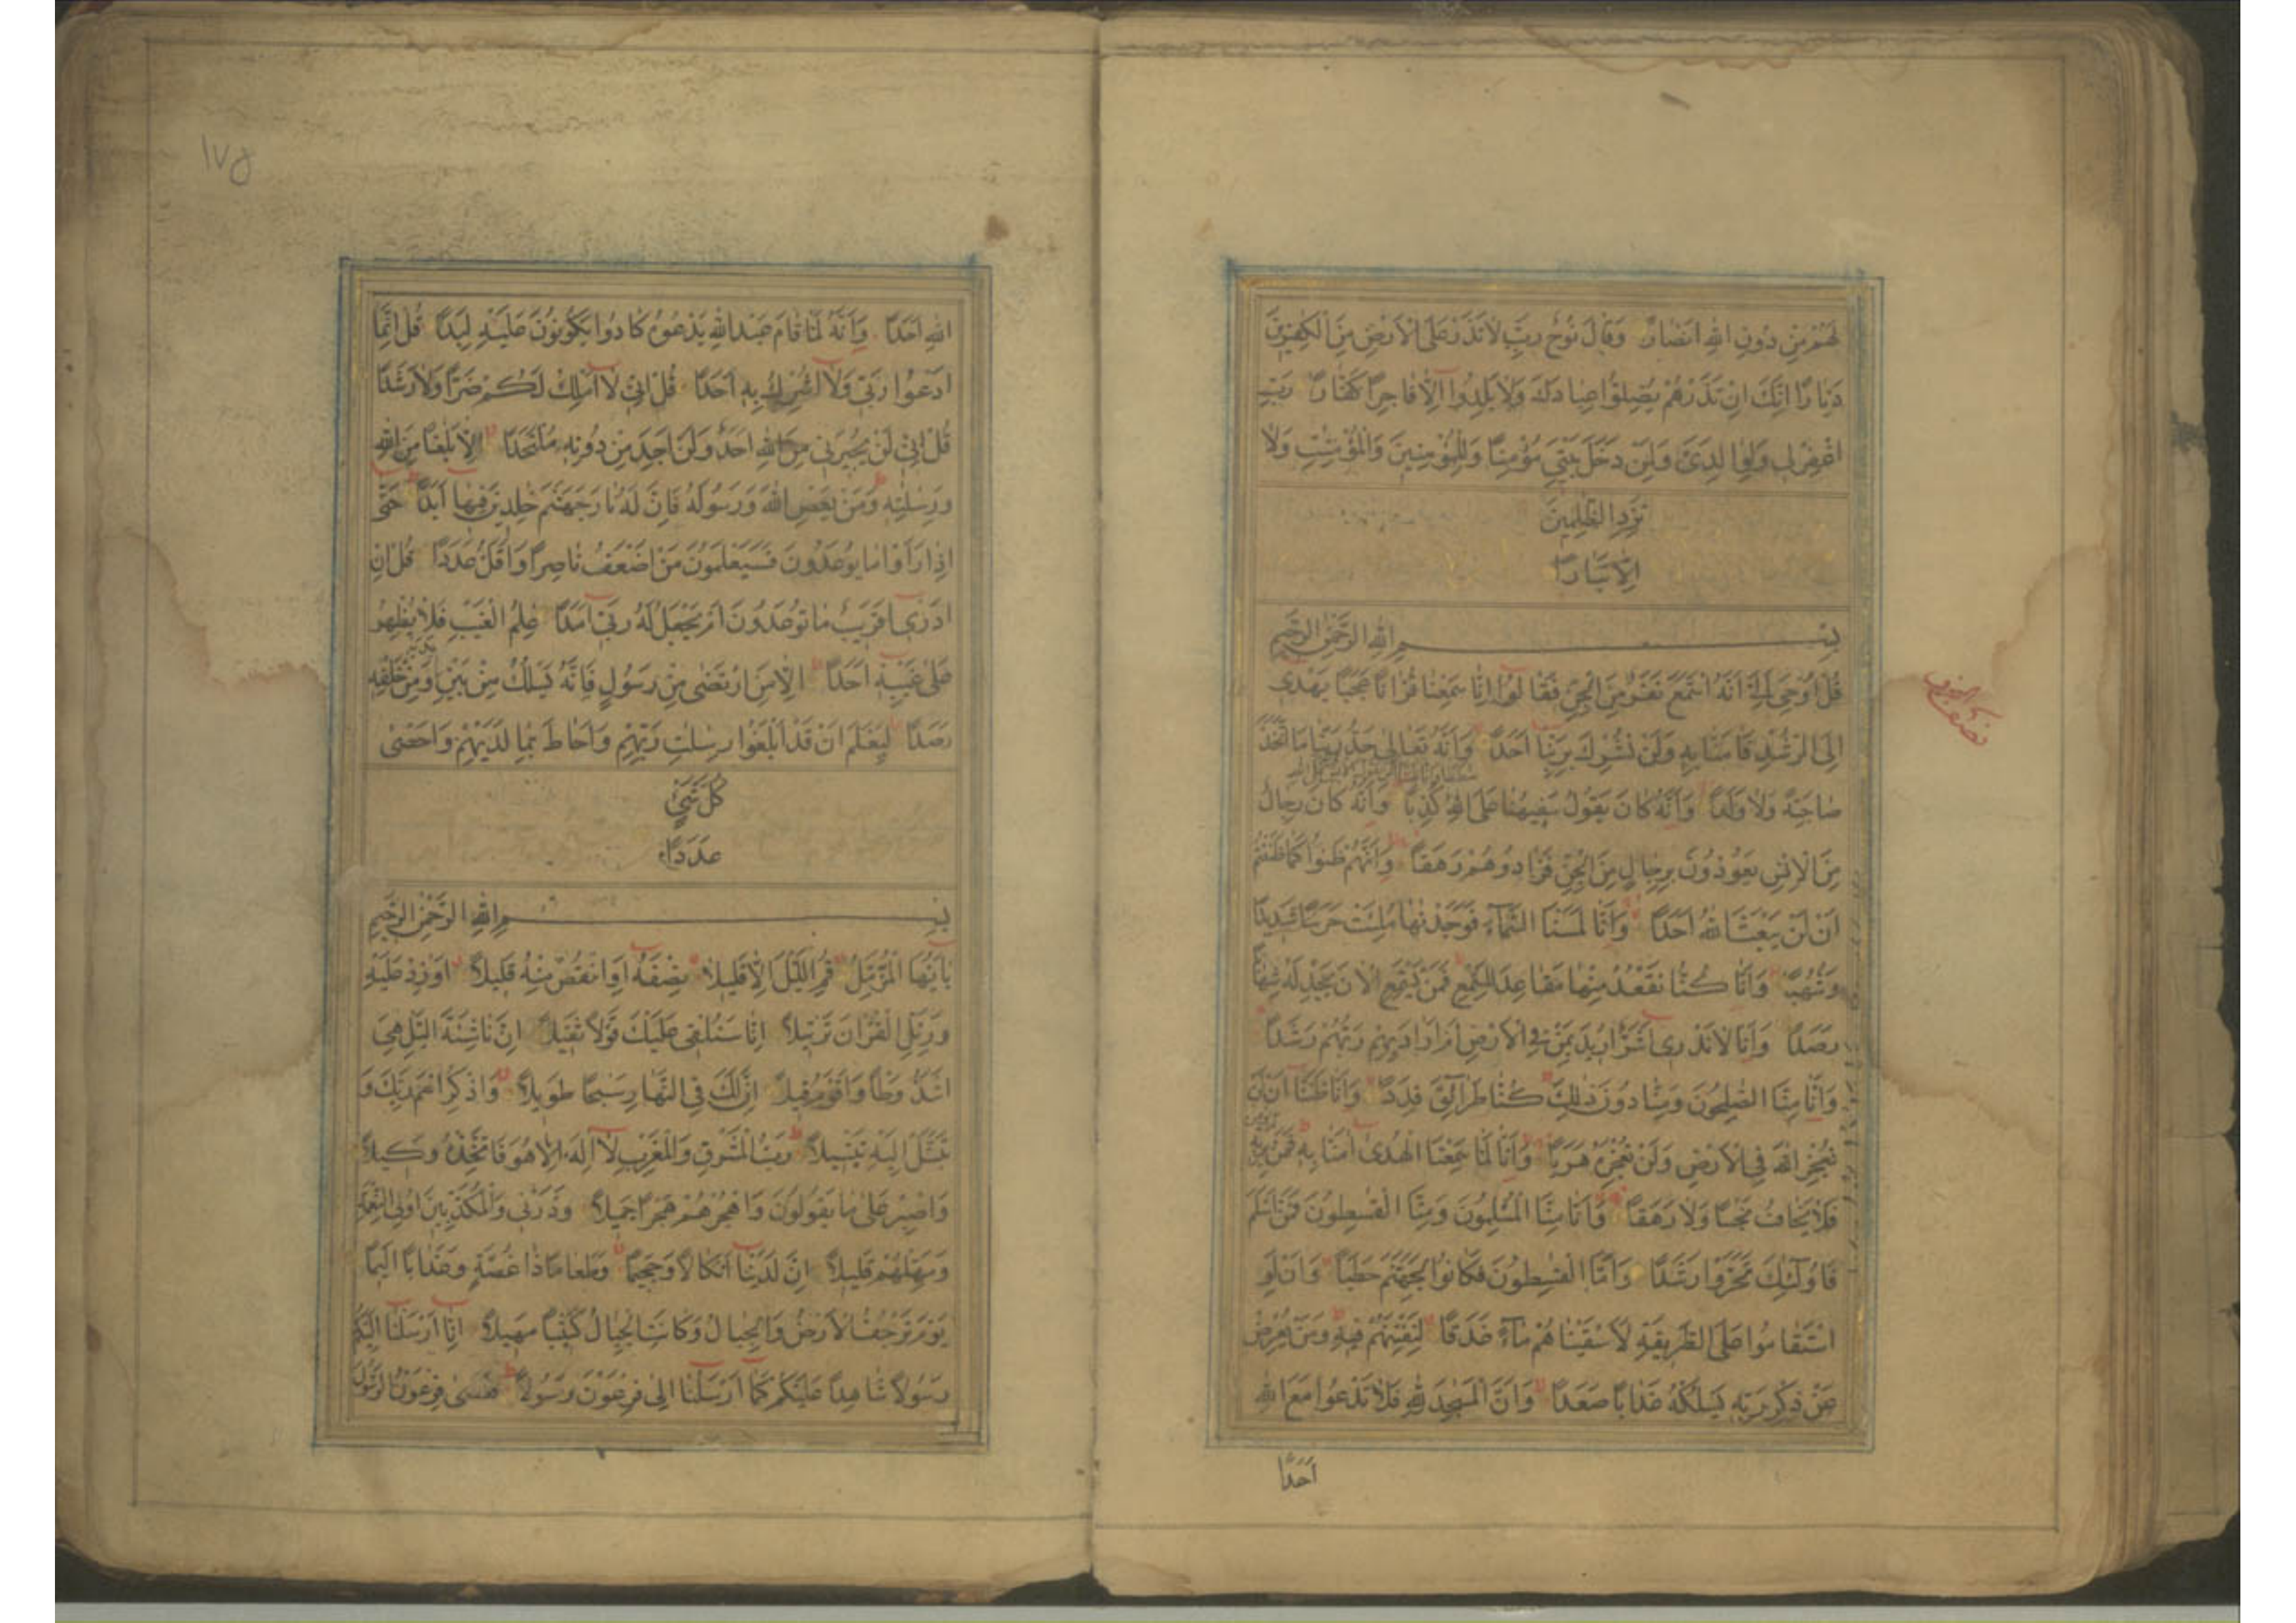 لَهُمْ مِنْ دُونِ اللهِ اَنْصَارًا وَقَالَ نُوحٌ رَبِّ لَا تَذَرْ عَلَى الْاَرْضِ مِنَ الْكٰفِرِينَ
دَيَّارًا اِنَّكَ اِنْ تَذَرْهُمْ يُضِلُّوا عِبَادَكَ وَلَا يَلِدُوا اِلَّا فَاجِرًا كَفَّارًا رَبِّ
اغْفِرْ لِي وَلِوَالِدَيَّ وَلِمَنْ دَخَلَ بَيْتِيَ مُؤْمِنًا وَلِلْمُؤْمِنِينَ وَالْمُؤْمِنٰتِ وَلَا
تَزِدِ الظّٰلِمِينَ
اِلَّا تَبَارًا
بِسْمِ اللهِ الرَّحْمٰنِ الرَّحِيمِ
قُلْ اُوحِيَ اِلَيَّ اَنَّهُ اسْتَمَعَ نَفَرٌ مِنَ الْجِنِّ فَقَالُوا اِنَّا سَمِعْنَا قُرْاٰنًا عَجَبًا يَهْدِي
اِلَى الرُّشْدِ فَاٰمَنَّا بِهِ وَلَنْ نُشْرِكَ بِرَبِّنَا اَحَدًا وَاَنَّهُ تَعَالٰى جَدُّ رَبِّنَا مَا اتَّخَذَ
صَاحِبَةً وَلَا وَلَدًا وَاَنَّهُ كَانَ يَقُولُ سَفِيهُنَا عَلَى اللهِ كَذِبًا وَاَنَّهُ كَانَ رِجَالٌ
مِنَ الْاِنْسِ يَعُوذُونَ بِرِجَالٍ مِنَ الْجِنِّ فَزَادُوهُمْ رَهَقًا وَاَنَّهُمْ ظَنُّوا كَمَا ظَنَنْتُمْ
اَنْ لَنْ يَبْعَثَ اللهُ اَحَدًا وَاَنَّا لَمَسْنَا السَّمَآءَ فَوَجَدْنٰهَا مُلِئَتْ حَرَسًا شَدِيدًا
وَشُهُبًا وَاَنَّا كُنَّا نَقْعُدُ مِنْهَا مَقَاعِدَ لِلسَّمْعِ فَمَنْ يَسْتَمِعِ الْاٰنَ يَجِدْ لَهُ شِهَابًا
رَصَدًا وَاَنَّا لَا نَدْرِي اَشَرٌّ اُرِيدَ بِمَنْ فِي الْاَرْضِ اَمْ اَرَادَ بِهِمْ رَبُّهُمْ رَشَدًا
وَاَنَّا مِنَّا الصّٰلِحُونَ وَمِنَّا دُونَ ذٰلِكَ كُنَّا طَرَآئِقَ قِدَدًا وَاَنَّا ظَنَنَّا اَنْ لَنْ
نُعْجِزَ اللهَ فِي الْاَرْضِ وَلَنْ نُعْجِزَهُ هَرَبًا وَاَنَّا لَمَّا سَمِعْنَا الْهُدٰى اٰمَنَّا بِهِ فَمَنْ يُؤْمِنْ بِرَبِّهِ
فَلَا يَخَافُ بَخْسًا وَلَا رَهَقًا وَاَنَّا مِنَّا الْمُسْلِمُونَ وَمِنَّا الْقٰسِطُونَ فَمَنْ اَسْلَمَ
فَاُولٰٓئِكَ تَحَرَّوْا رَشَدًا وَاَمَّا الْقٰسِطُونَ فَكَانُوا لِجَهَنَّمَ حَطَبًا وَاَنْ لَوِ
اسْتَقَامُوا عَلَى الطَّرِيقَةِ لَاَسْقَيْنَاهُمْ مَآءً غَدَقًا لِنَفْتِنَهُمْ فِيهِ وَمَنْ يُعْرِضْ
عَنْ ذِكْرِ رَبِّهِ يَسْلُكْهُ عَذَابًا صَعَدًا وَاَنَّ الْمَسٰجِدَ لِلّٰهِ فَلَا تَدْعُوا مَعَ اللهِ
اَحَدًا
١٧٥
اللهِ اَحَدًا وَاَنَّهُ لَمَّا قَامَ عَبْدُ اللهِ يَدْعُوهُ كَادُوا يَكُونُونَ عَلَيْهِ لِبَدًا قُلْ اِنَّمَا
اَدْعُوا رَبِّي وَلَا اُشْرِكُ بِهِ اَحَدًا قُلْ اِنِّي لَا اَمْلِكُ لَكُمْ ضَرًّا وَلَا رَشَدًا
قُلْ اِنِّي لَنْ يُجِيرَنِي مِنَ اللهِ اَحَدٌ وَلَنْ اَجِدَ مِنْ دُونِهِ مُلْتَحَدًا اِلَّا بَلٰغًا مِنَ اللهِ
وَرِسٰلٰتِهِ وَمَنْ يَعْصِ اللهَ وَرَسُولَهُ فَاِنَّ لَهُ نَارَ جَهَنَّمَ خٰلِدِينَ فِيهَا اَبَدًا حَتّٰى
اِذَا رَاَوْا مَا يُوعَدُونَ فَسَيَعْلَمُونَ مَنْ اَضْعَفُ نَاصِرًا وَاَقَلُّ عَدَدًا قُلْ اِنْ
اَدْرِي اَقَرِيبٌ مَا تُوعَدُونَ اَمْ يَجْعَلُ لَهُ رَبِّي اَمَدًا عٰلِمُ الْغَيْبِ فَلَا يُظْهِرُ
عَلٰى غَيْبِهِ اَحَدًا اِلَّا مَنِ ارْتَضٰى مِنْ رَسُولٍ فَاِنَّهُ يَسْلُكُ مِنْ بَيْنِ يَدَيْهِ وَمِنْ خَلْفِهِ
رَصَدًا لِيَعْلَمَ اَنْ قَدْ اَبْلَغُوا رِسٰلٰتِ رَبِّهِمْ وَاَحَاطَ بِمَا لَدَيْهِمْ وَاَحْصٰى
كُلَّ شَيْءٍ
عَدَدًا
بِسْمِ اللهِ الرَّحْمٰنِ الرَّحِيمِ
يٰاَيُّهَا الْمُزَّمِّلُ قُمِ اللَّيْلَ اِلَّا قَلِيلًا نِصْفَهُ اَوِ انْقُصْ مِنْهُ قَلِيلًا اَوْ زِدْ عَلَيْهِ
وَرَتِّلِ الْقُرْاٰنَ تَرْتِيلًا اِنَّا سَنُلْقِي عَلَيْكَ قَوْلًا ثَقِيلًا اِنَّ نَاشِئَةَ الَّيْلِ هِيَ
اَشَدُّ وَطْأً وَاَقْوَمُ قِيلًا اِنَّ لَكَ فِي النَّهَارِ سَبْحًا طَوِيلًا وَاذْكُرِ اسْمَ رَبِّكَ وَ
تَبَتَّلْ اِلَيْهِ تَبْتِيلًا رَبُّ الْمَشْرِقِ وَالْمَغْرِبِ لَا اِلٰهَ اِلَّا هُوَ فَاتَّخِذْهُ وَكِيلًا
وَاصْبِرْ عَلٰى مَا يَقُولُونَ وَاهْجُرْهُمْ هَجْرًا جَمِيلًا وَذَرْنِي وَالْمُكَذِّبِينَ اُولِي النَّعْمَةِ
وَمَهِّلْهُمْ قَلِيلًا اِنَّ لَدَيْنَا اَنْكَالًا وَجَحِيمًا وَطَعَامًا ذَا غُصَّةٍ وَعَذَابًا اَلِيمًا
يَوْمَ تَرْجُفُ الْاَرْضُ وَالْجِبَالُ وَكَانَتِ الْجِبَالُ كَثِيبًا مَهِيلًا اِنَّا اَرْسَلْنَا اِلَيْكُمْ
رَسُولًا شَاهِدًا عَلَيْكُمْ كَمَا اَرْسَلْنَا اِلٰى فِرْعَوْنَ رَسُولًا فَعَصٰى فِرْعَوْنُ الرَّسُولَ